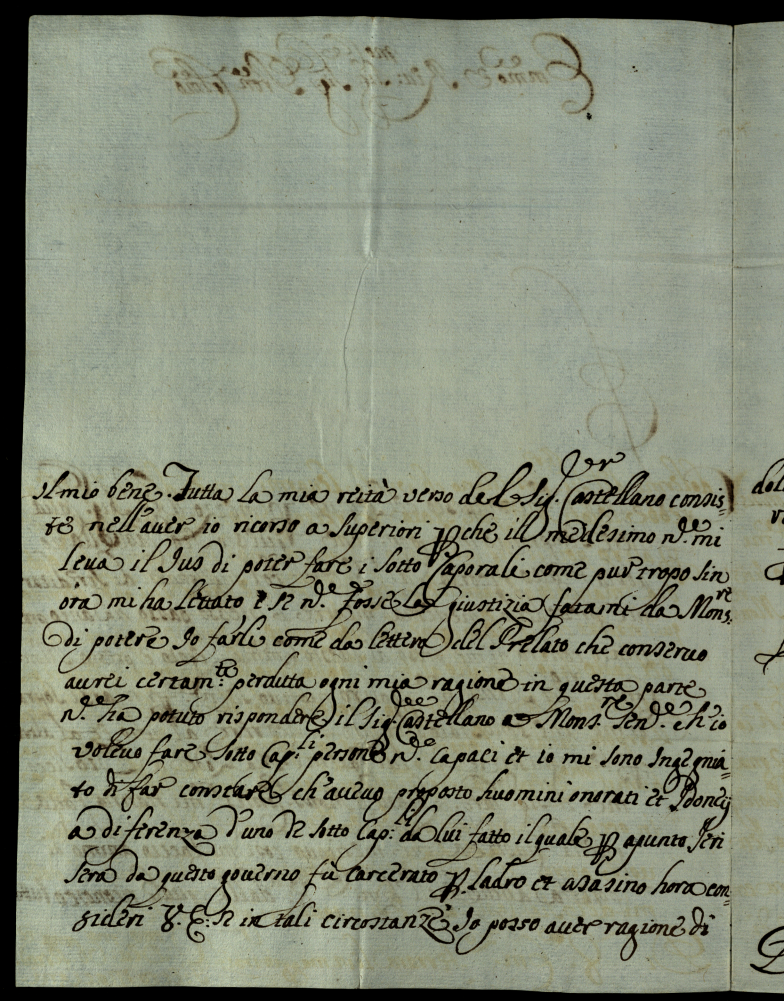 il mio bene. Tutta la mia reità verso del Sig.r Castellano consis=
te nell'aver io ricorso a Superiori p che il medesimo n.e mi
leva il Jus di poter fare i sotto Caporali come pur tropo sin
ora mi ha lettato e se n.e fosse la giustizia fatami da Mons.re
di potere Jo farli come da lettera del Prelato che conservo
aurei certam.te perdutta ogni mia ragione in questa parte
n.e ha potuto rispondere il Sig.r Castellano a Mons.re se n.e ch'io
volevo fare sotto Cap.li persone n.e capaci et io mi sono Ingegnia=
to di far constare ch'avevo proposto huomini onorati et Idonej
a diferenza d'uno de sotto Cap.li da lui fatto il quale p apunto Jeri
sera da questo governo fù carcerato p ladro et asasino hora con=
sideri V. E. se in tali circostanze Jo posso aver ragione di